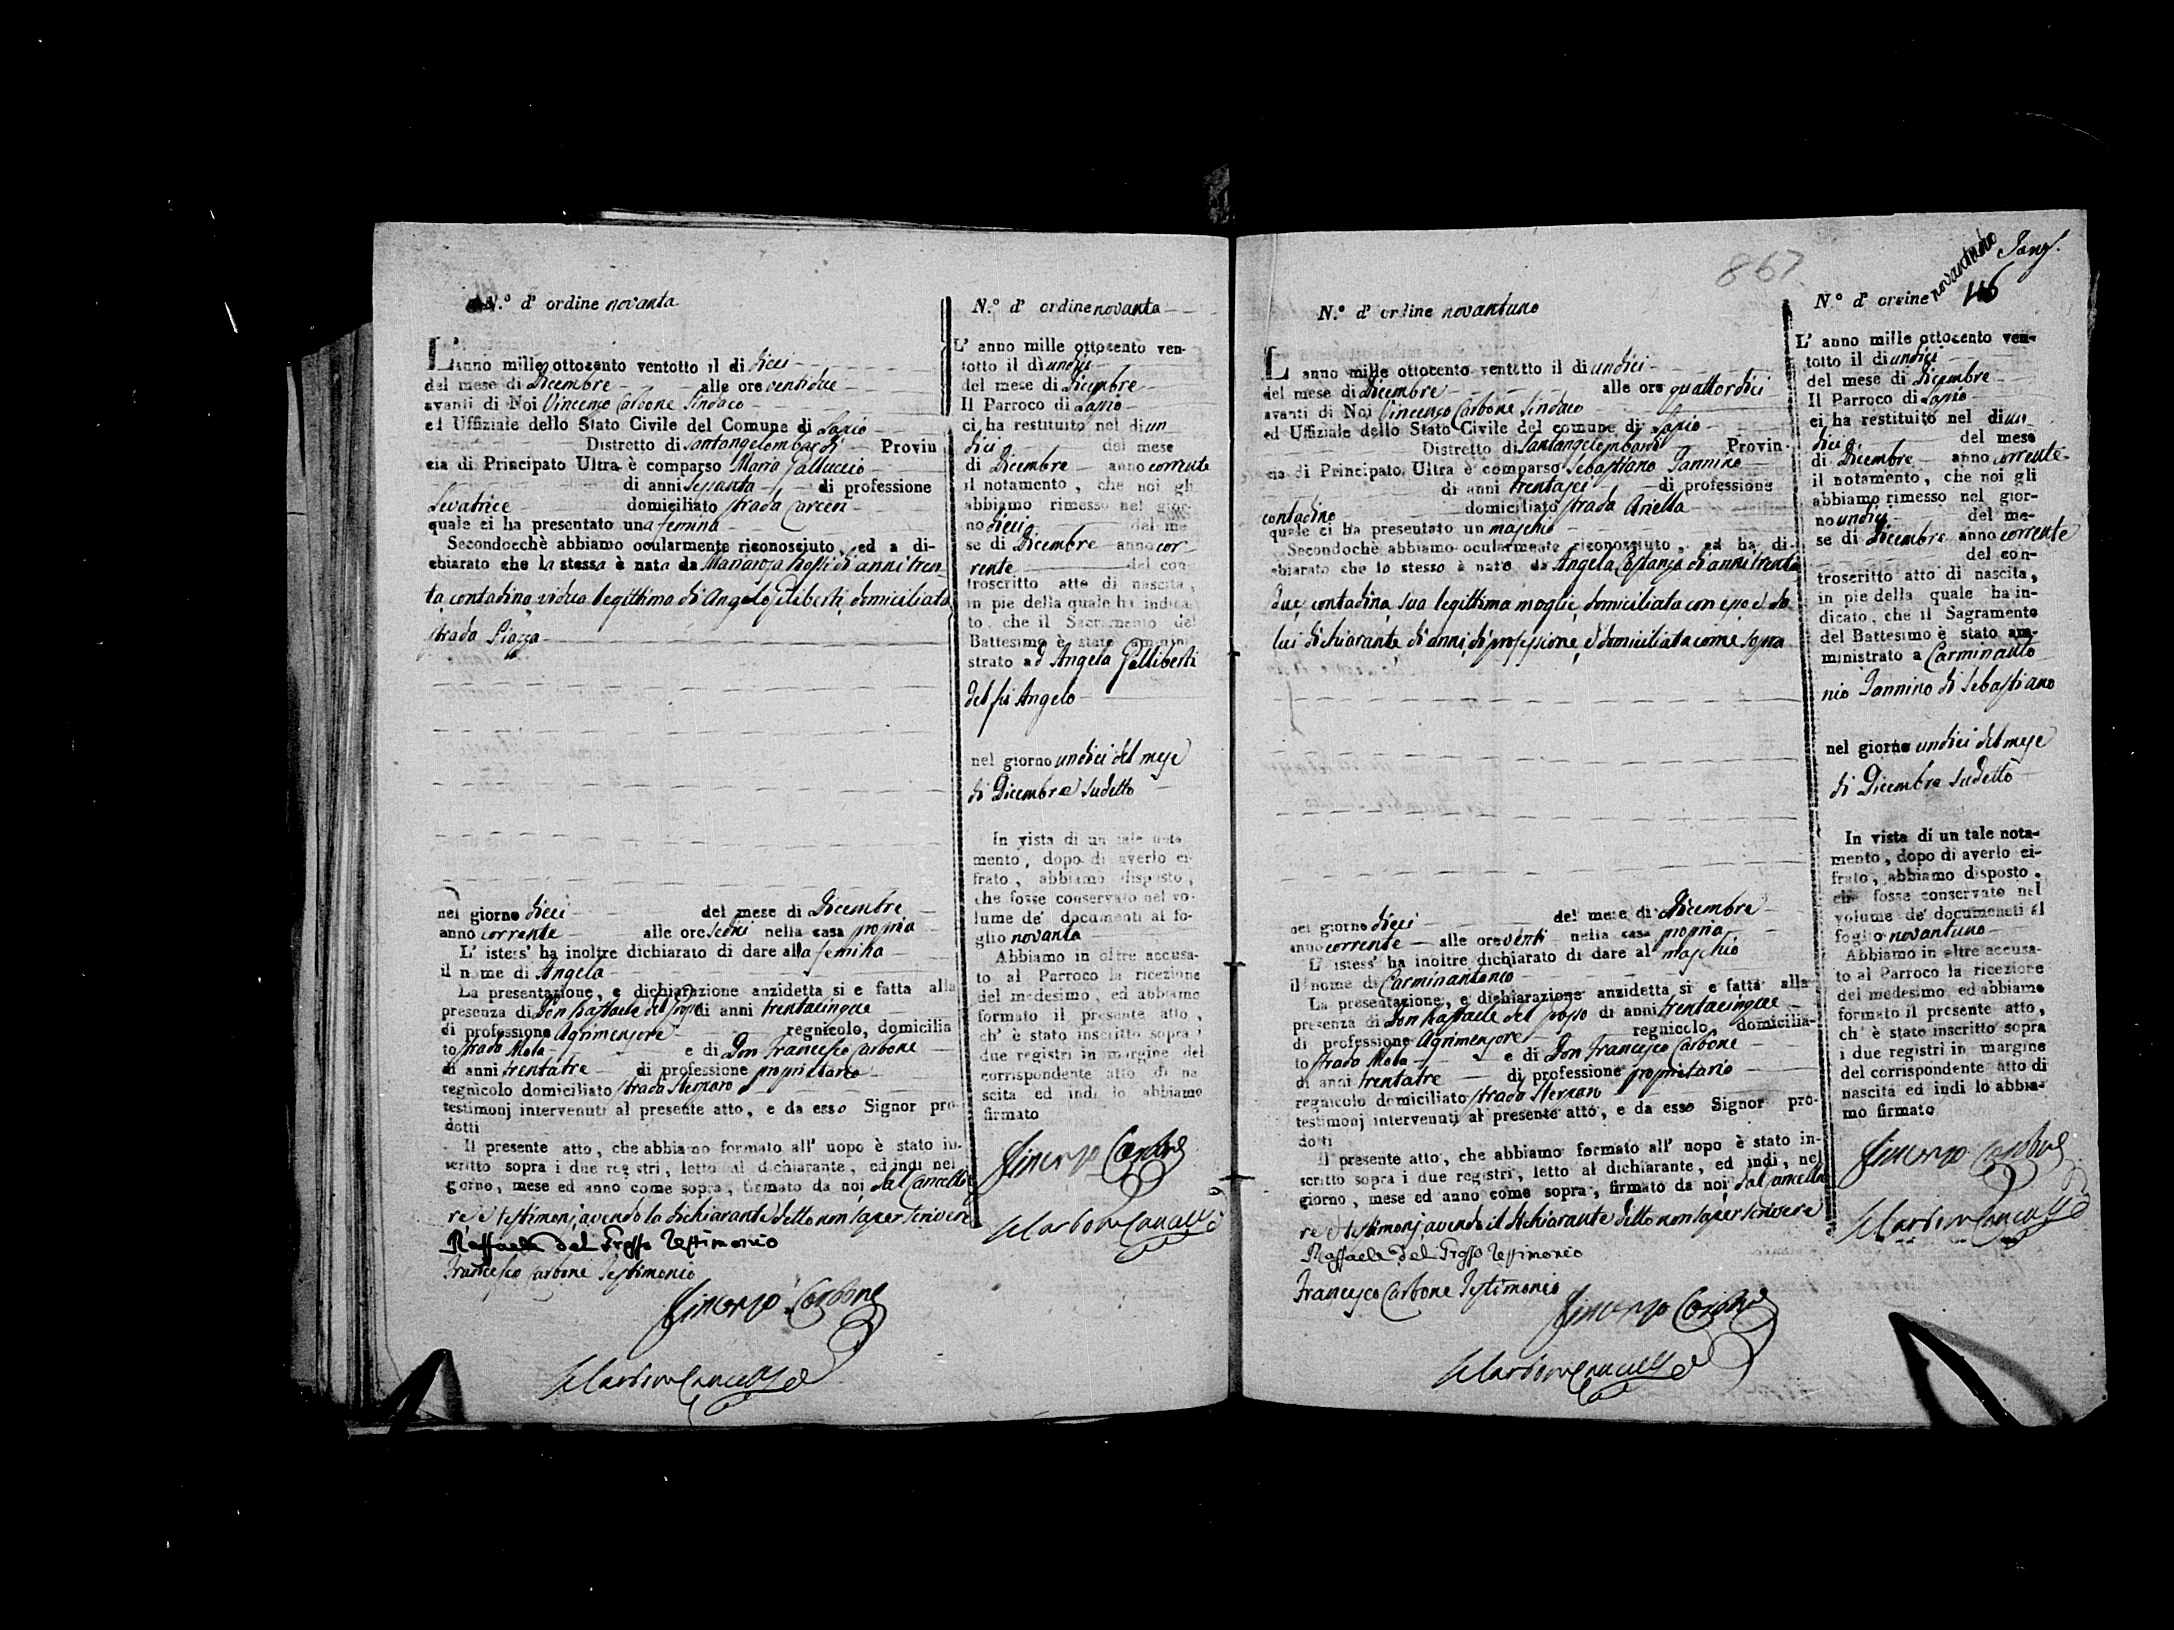 N.º d' ordine novanta
L'anno mille ottocento ventotto il di dieci
del mese di Dicembre alle ore ventidue
avanti di Noi Vincenzo Carbone Sindaco
ed Uffiziale dello Stato Civile del Comune di Lapio
Distretto di Santangelombardi Provin
cia di Principato Ultra è comparso Maria Galluccio
di anni sessanta di professione
Levatrice domiciliato strada Carceri
quale ci ha presentato una femina
Secondocchè abbiamo ocularmente riconosciuto, ed a di-
chiarato che la stessa è nata da Mariarosa di anni tren
ta, contadina, vidua legittima di Angelo Filiberti, domiciliata
strada Piazza
nel giorno dieci del mese di Dicembre
anno corrente alle ore sedici nella casa propria
L' istess' ha inoltre dichiarato di dare alla femina
il nome di Angela
La presentazione, e dichiarazione anzidetta si e fatta alla
presenza di Don Raffaele del Grosso di anni trentacinque
di professione Agrimensore regnicolo, domicilia
to strada Mola e di Don Francesco Carbone
di anni trentatre di professione proprietario
regnicolo domiciliato strada
testimonj intervenuti al presente atto, e da esso Signor pro-
dotti
Il presente atto, che abbiamo formato all' uopo è stato in-
scritto sopra i due registri, letto al dichiarante, ed indi nel
giorno, mese ed anno come sopra, firmato da noi dal Cancellie
re e testimonj, avendo la dichiarante detto non saper scrivere
Raffaele del Grosso Testimonio
Francesco Carbone Testimonio
Vincenzo Carbone
N.º d' ordine novanta
L' anno mille ottocento ven-
totto il di undici
del mese di Dicembre
Il Parroco di Lapio
ci ha restituito nel di un
dici del mese
di Dicembre anno corrente
il notamento, che noi gli
abbiamo rimesso nel gior-
no dieci del me-
se di Dicembre anno cor
rente del con-
troscritto atto di nascita,
in pie della quale ha indica-
to, che il Sacramento del
Battesimo è stato ammini-
strato ad Angela Filiberti
del fu Angelo
nel giorno undici del mese
di Dicembre sudetto
In vista di un tale nota-
mento, dopo di averlo ci-
frato, abbiamo disposto,
che fosse conservato nel vo-
lume de' documenti al fo-
glio novanta
Abbiamo in oltre accusa-
to al Parroco la ricezione
del medesimo, ed abbiamo
formato il presente atto,
ch' è stato inscritto sopra i
due registri in margine del
corrispondente atto di na
scita ed indi lo abbiamo
firmato
Vincenzo Carbone
867.
N.º d' ordine novantuno
L' anno mille ottocento ventotto il di undici
del mese di Dicembre alle ore quattordici
avanti di Noi Vincenzo Carbone Sindaco
ed Uffiziale dello Stato Civile del comune di Lapio
Distretto di Santangelombardi Provin-
cia di Principato Ultra è comparso Sebastiano Jannino
di anni trentasei di professione
contadino domiciliato strada Ariella
quale ci ha presentato un maschio
Secondochè abbiamo ocularmente riconosciuto, ed ha di-
chiarato che lo stesso è nato da Angela Costanza di anni trenta
due, contadina, sua legittima moglie, domiciliata con esso e da
lui dichiarante di anni, di professione, e domiciliata come sopra
nel giorno dieci del mese di Dicembre
anno corrente alle ore venti nella casa propria
L' istess' ha inoltre dichiarato di dare al maschio
il nome di Carminantonio
La presentazione, e dichiarazione anzidetta si e fatta alla
presenza di Don Raffaele del Grosso di anni trentacinque
di professione Agrimensore regnicolo domicilia-
to strada Mola e di Don Francesco Carbone
di anni trentatre di professione proprietario
regnicolo domiciliato strada
testimonj intervenuti al presente atto, e da esso Signor pro-
dotti
Il presente atto, che abbiamo formato all' uopo è stato in-
scritto sopra i due registri, letto al dichiarante, ed indi, nel
giorno, mese ed anno come sopra, firmato da noi dal Cancellie
re e testimonj, avendo il dichiarante detto non saper scrivere
Raffaele del Grosso Testimonio
Francesco Carbone Testimonio
Vincenzo Carbone
N.º d' ordine novantuno
116
L' anno mille ottocento ven-
totto il di undici
del mese di Dicembre
Il Parroco di Lapio
ci ha restituito nel di un
dici del mese
di Dicembre anno corrente
il notamento, che noi gli
abbiamo rimesso nel gior-
no undici del me-
se di Dicembre anno corrente
del con-
troscritto atto di nascita,
in pie della quale ha in-
dicato, che il Sagramento
del Battesimo è stato am-
ministrato a Carminanto
nio Jannino di Sebastiano
nel giorno undici del mese
di Dicembre sudetto
In vista di un tale nota-
mento, dopo di averlo ci-
frato, abbiamo disposto,
che fosse conservato nel
volume de' documeneti al
foglio novantuno
Abbiamo in oltre accusa-
to al Parroco la ricezione
del medesimo ed abbiamo
formato il presente atto,
ch' è stato inscritto sopra
i due registri in margine
del corrispondente atto di
nascita ed indi lo abbia-
mo firmato
Vincenzo Carbone